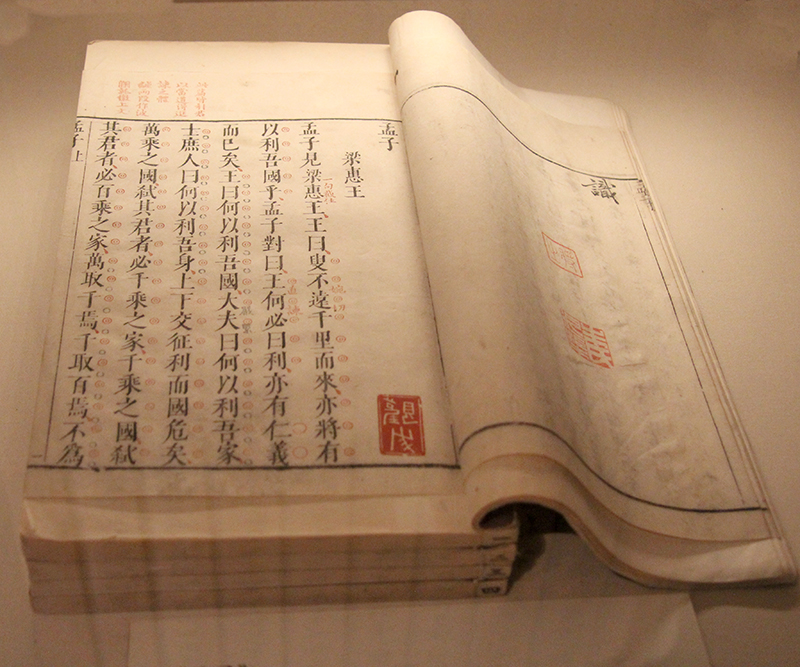 識
孟子
梁惠王
孟子見梁惠王、王曰、叟不遠千里而來、亦將有
以利吾國乎、孟子對曰、王何必曰利、亦有仁義
而已矣、王曰何以利吾國、大夫曰何以利吾家、
士庶人曰何以利吾身、上下交征利而國危矣、
萬乘之國弑其君者、必千乘之家、千乘之國弑
其君者、必百乘之家、萬取千焉、千取百焉、不爲
孟子上
二
三
四